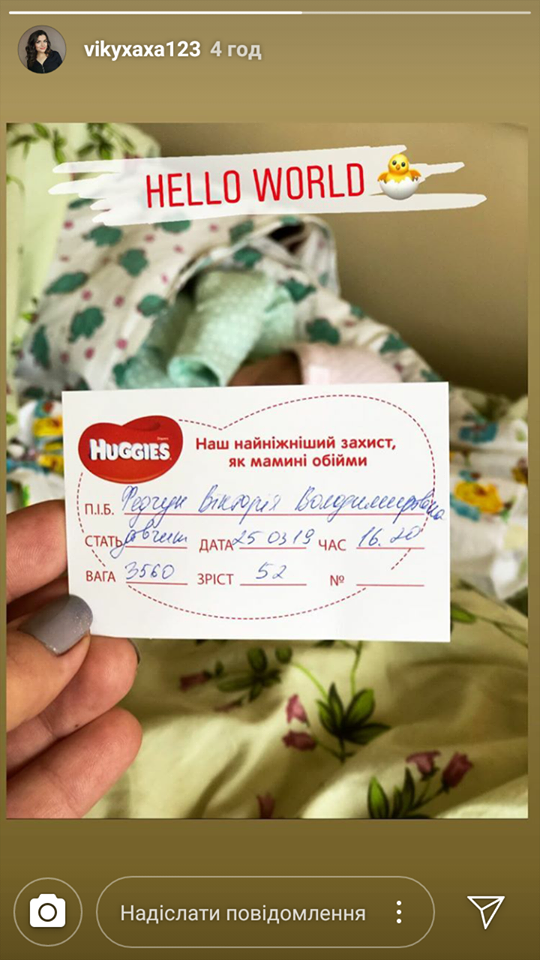 vikyxaxa123 4 год
HELLO WORLD
HUGGIES
Наш найніжніший захист,
як мамині обійми
П.І.Б. Федчун Вікторія Володимирівна
СТАТЬ дівчин ДАТА 25 03 19 ЧАС 16.20
ВАГА 3560 ЗРІСТ 52 №
Надіслати повідомлення